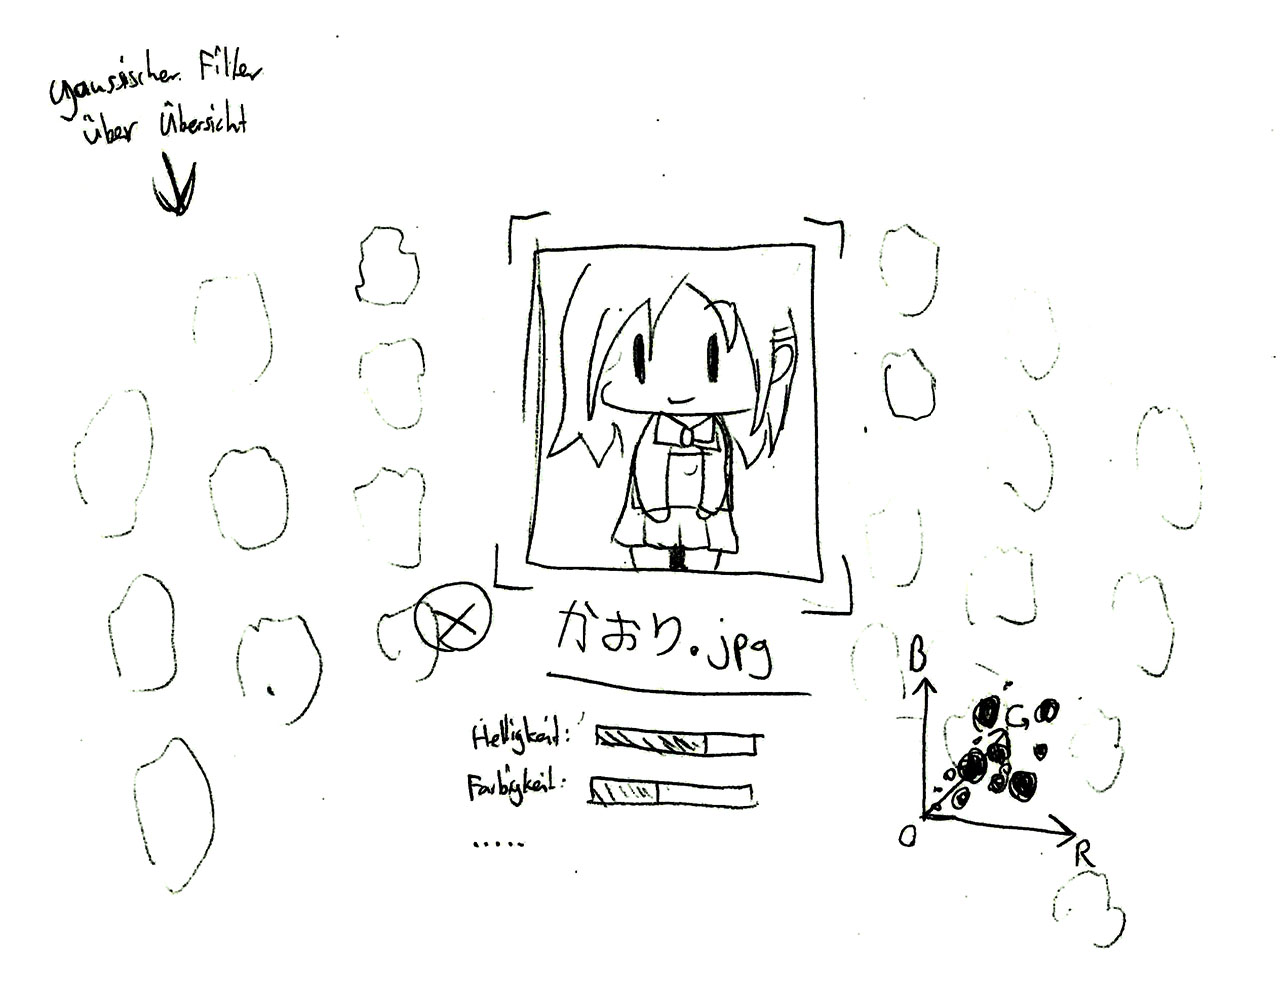 gaussischer Filter
über Übersicht
かおり.jpg
Helligkeit:
Farbigkeit:
.....
B
G
O
R